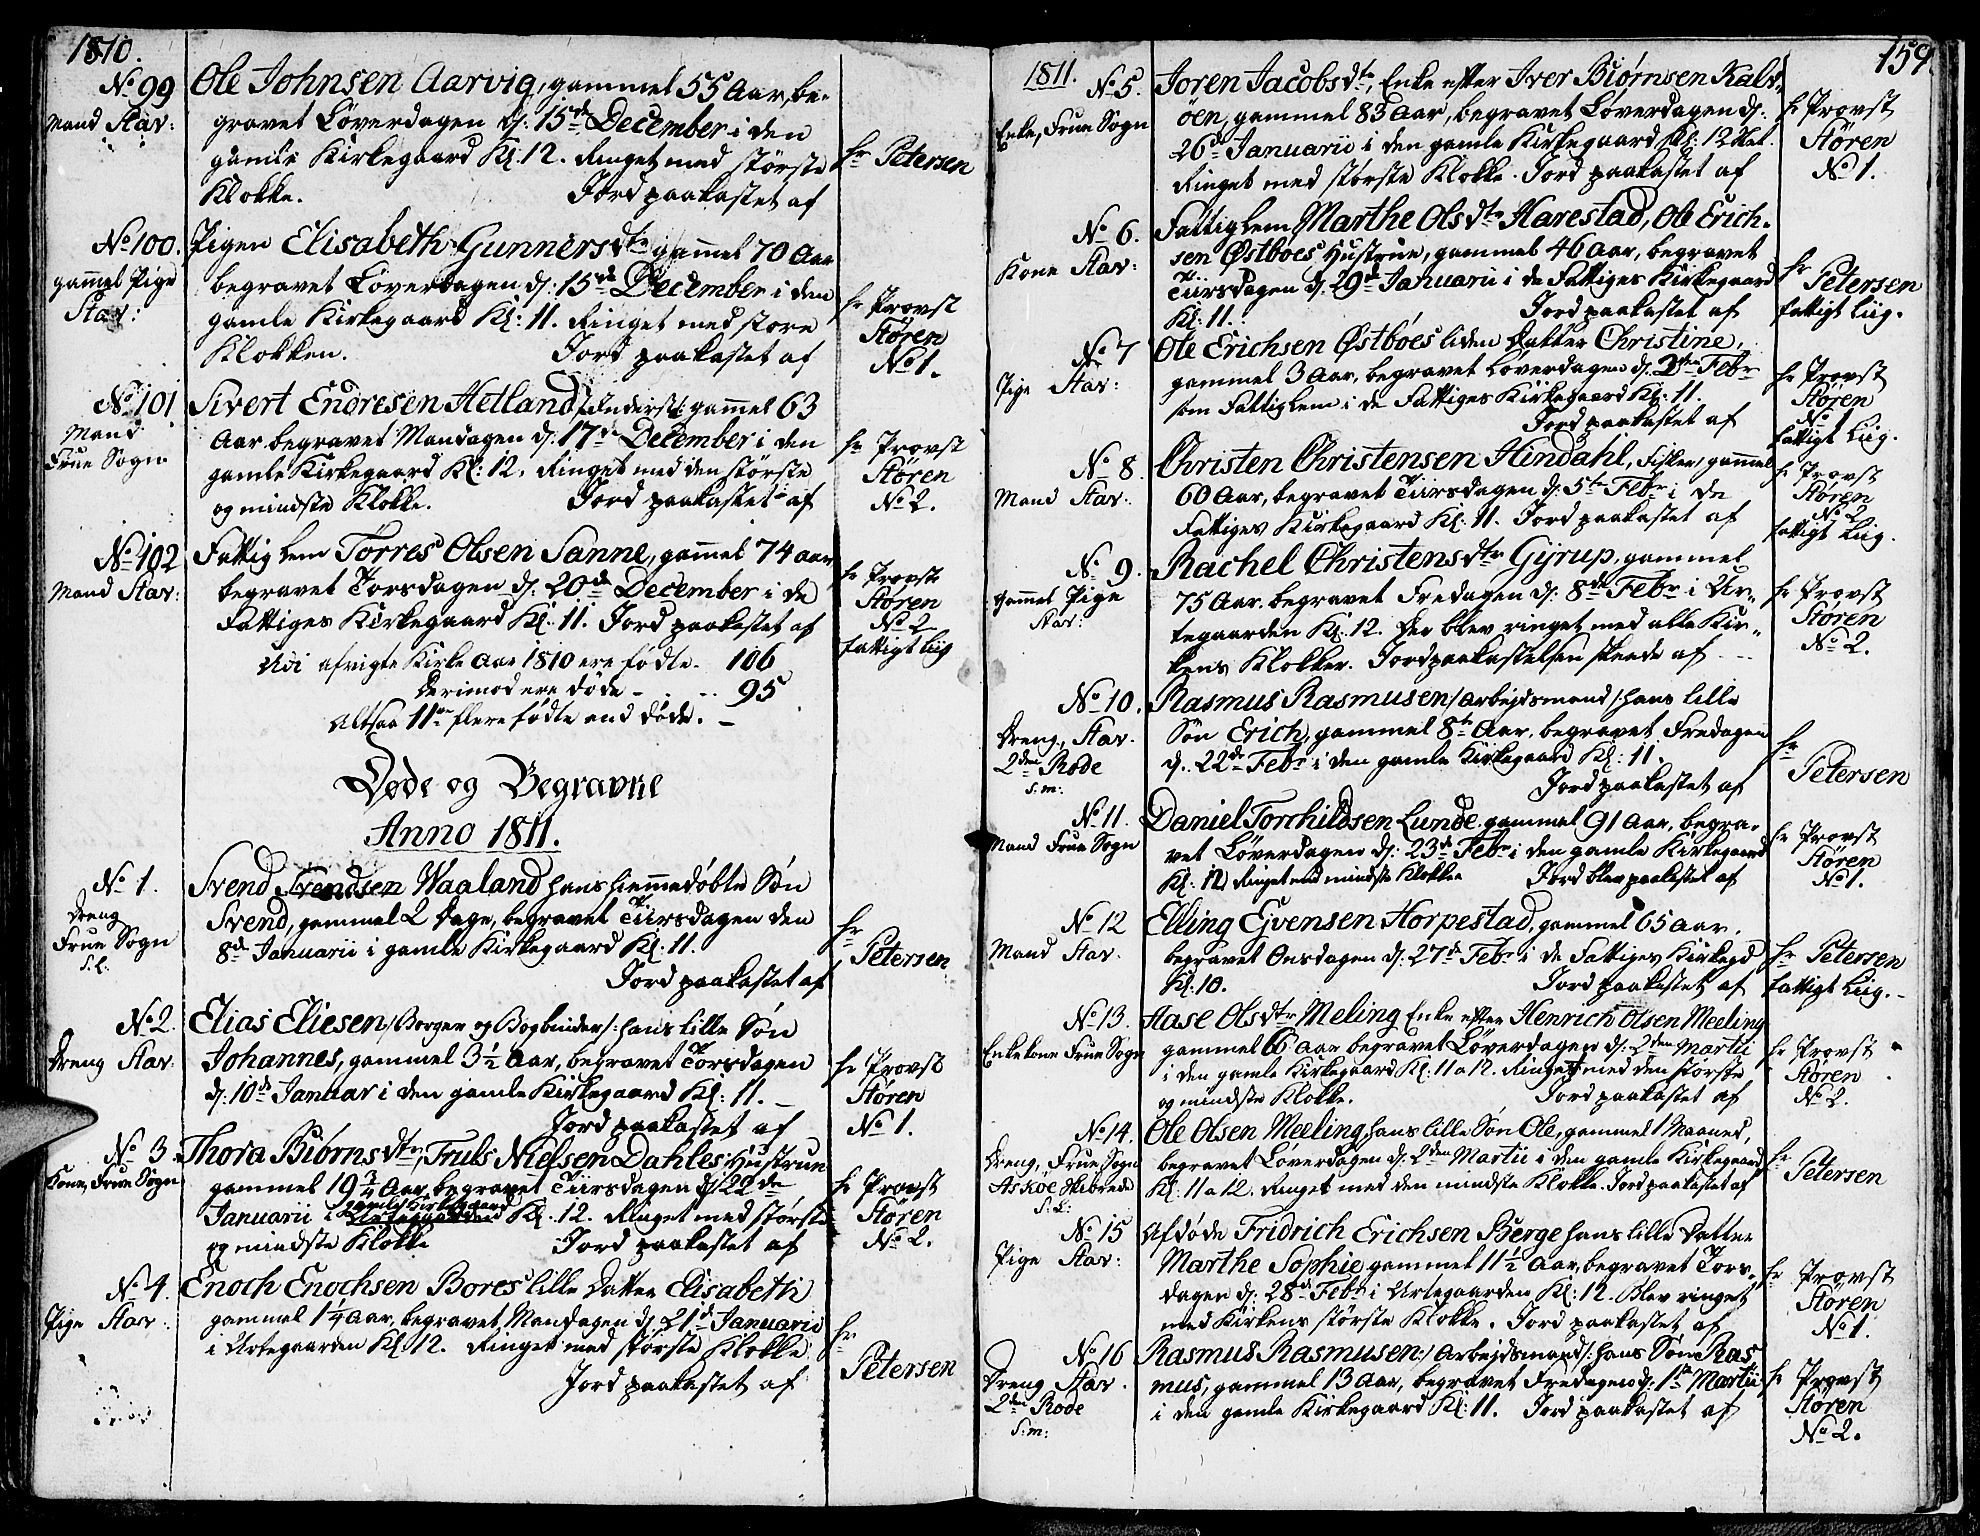 1810.
No 99
Mand Stav:
Ole Johnsen Aarvig, gammel 55 Aar, be-
gravet Løverdagen d: 15de December i den
gamle Kirkegaard Kl: 12. Ringet med største
Klokke. Jord paakastet af
Hr Petersen
No 100.
gamel Pige
Stav:
Pigen Elisabeth Gunnersdtr gamel 70 Aar
begravet Løverdagen d: 15de December i den
gamle Kirkegaard Kl: 11. Ringet med store
Klokken. Jord paakastet af
Hr Provst
Støren
No 1.
No 101
Mand
Frue Sogn
Sivert Endresen Hetland /: Inderst :/ gamel 63
Aar begravet Mandagen d: 17de December i den
gamle Kirkegaard Kl: 12. Ringet med den største
og mindste Klokke. Jord paakastet af
Hr Provst
Støren
No 2.
No 102
Mand Stav:
Fattiglem Tørres Olsen Sanne, gamel 74 aar
begravet Torsdagen d: 20de December i de
Fattiges Kirkegaard Kl: 11. Jord paakastet af
Hr Provst
Støren
No 2
fattigt Liig
Udi afvigte Kirke Aar 1810 ere fødte. 106
Derimod ere døde - 95
Altsaa 11ve flere fødte end døde. -
Døde og Begravne
Anno 1811.
No 1.
Dreng
Frue Sogn
S.L:
Svend Svendsen Waaland hans hiemmedøbte Søn
Svend, gammel 2 Dage, begravet Tiirsdagen den
8de Januarii i gamle Kirkegaard Kl: 11.
Jord paakastet af
Hr
Petersen
No 2.
Dreng Stav:
Elias Eliesen /: Borger og Bogbinder :/ hans lille Søn
Johannes, gammel 3 1/2 Aar, begravet Torsdagen
d: 10de Januar i den gamle Kirkegaard Kl: 11. -
Jord paakastet af
Hr Provst
Støren
No 1.
No 3
Kone, Frue Sogn
Thora Biörnsdtr, Truls Nielsen Dahles Hustrue
gammel 19 3/4 Aar, begravet Tiirsdagen d: 22de
Januarii i gamle Kirkegaard Kl: 12. Ringet med største
og mindste Klokke Jord paakastet af
Hr Provst
Støren
No 2.
No 4.
Pige Stav:
Enoch Enochsen Bores lille Datter Elisabeth
gammel 1 1/4 Aar, begravet Mandagen d: 21de Januarii
i Urtegaarden Kl: 12. Ringet med største Klokke
Jord paakastet af
Hr
Petersen
159
1811.
No 5.
Enke, Frue Sogn
Joren Jacobsdtr, Enke efter Iver Biørnsen Kalv-
øen, gammel 83 Aar, begravet Løverdagen d:
26de Januarii i den gamle Kirkegaard Kl: 12 Slet.
Ringet med største Klokke. Jord paakastet af
Hr Provst
Støren
No 1.
No 6.
Kone Stav:
Fattiglem Marthe Olsdtr Harestad, Ole Erich-
sen Østboes Hustrue, gammel 46 Aar, begravet
Tiirsdagen d: 29de Januarii i de Fattiges Kirkegaard
Kl: 11. Jord paakastet af
Hr
Petersen
fattigt Liig.
No 7
Pige Stav:
Ole Erichsen Østboes liden Datter Christine,
gammel 3 Aar, begravet Løverdagen d: 2den Febr
som Fattiglem i de Fattiges Kirkegaard Kl: 11.
Jord paakastet af
Hr Provst
Støren
No 1
fattigt Liig.
No 8
Mand Stav:
Christen Christensen Hindahl, Fisker, gammel
60 Aar, begravet Tiirsdagen d: 5te Febr i de
Fattiges Kirkegaard Kl: 11. Jord paakastet af
Hr Provst
Støren
No 2
fattigt Liig.
No 9.
gammel Pige
Stav:
Rachel Christensdtr Gyrup, gammel
75 Aar. begravet Fredagen d: 8de Febr i Ur-
tegaarden Kl: 12. Der blev ringet med alle Kir-
kens Klokker. Jordpaakastelsen skeede af
Hr Provst
Støren
No 2.
No 10.
Dreng, Stav.
2den Rode
S.m:
Rasmus Rasmusen /: Arbejdsmand :/ hans lille
Søn Erich, gammel 8te Aar, begravet Fredagen
d: 22de Febr i den gamle Kirkegaard Kl: 11.
Jord paakastet af
Hr
Petersen
No 11.
Mand Frue Sogn
Daniel Torchildsen Lunde gammel 91 Aar, begra-
vet Løverdagen d: 23de Febr i den gamle Kirkegaard
Kl: 12 Ringet med mindste Klokke Jord blev paakastet af
Hr Provst
Støren
No 1.
No 12
Mand Stav.
Elling Ejvensen Horpestad, gammel 65 Aar.
begravet Onsdagen d: 27de Febr i de Fattiges Kirkegd
Kl: 10. Jord paakastet af
Hr Petersen
fattigt Liig.
No 13.
Enkekone Frue Sogn
Aase Olsdtr Meling Enke efter Henrich Olsen Meeling
gammel 66 Aar begravet Løverdagen d: 2den Martii
i den gamle Kirkegaard Kl: 11 a 12. Ringet med den største
og mindste Klokke. Jord paakastet af
Hr Provst
Støren
No 2.
No 14.
Dreng, Frue Sogn
Askøe Skibrede
S:L:
Ole Olsen Meeling, hans lille Søn Ole, gammel 1 Maaned,
begravet Løverdagen d: 2den Martii i den gamle Kirkegaard
Kl: 11 a 12. Ringet med den mindste Klokke. Jord paakastet af
Hr
Petersen
No 15
Pige Stav:
Afdøde Fridrich Erichsen Berge hans lille Datter
Marthe Sophie gammel 11 1/2 Aar, begravet Tors-
dagen d: 28de Febr i Urtegaarden Kl: 12. Blev ringet
med Kirkens største Klokke. Jord paakastet af
Hr Provst
Støren
No 1.
No 16
Dreng Stav.
2den Rode
S:m:
Rasmus Rasmusen /: Arbejdsmand :/ hans Søn Ras
mus, gammel 13 Aar, begravet Fredagen d: 1ste Martii
i den gamle Kirkegaard Kl: 11. Jord paakastet af
Hr Provst
Støren
No 2.